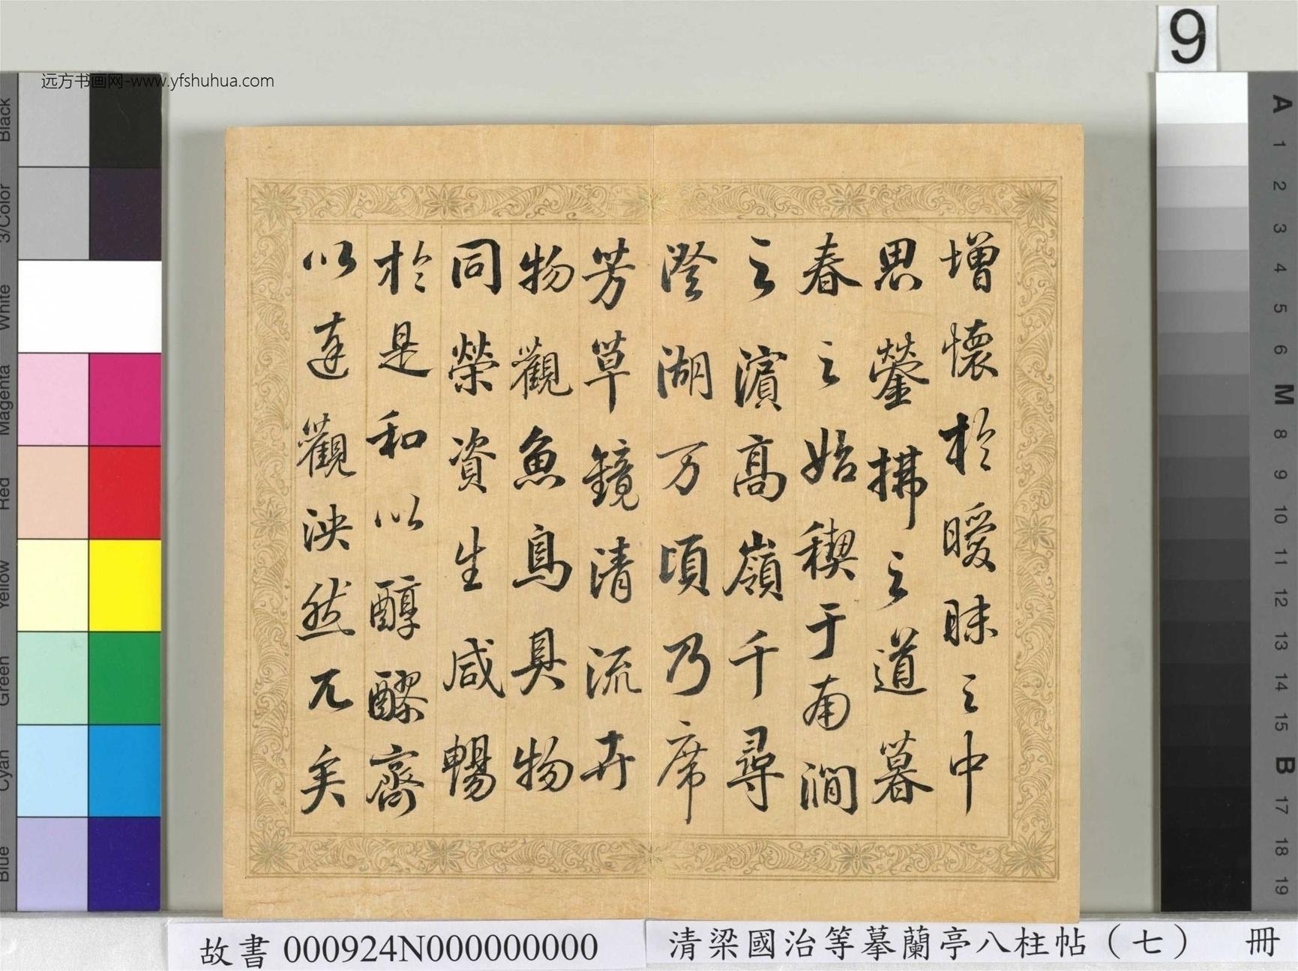 9
远方书画网-www.yfshuhua.com
增懷於曖昧之中
思鎣拂之道暮
春之始禊于南澗
之濱高嶺千尋
澄湖万頃乃席
芳草鏡清流卉
物觀魚鳥具物
同榮資生咸暢
於是和以醇醪齊
以達觀泱然兀矣
Black
3/Color
White
Magenta
Red
Yellow
Green
Cyan
Blue
A
1
2
3
4
5
6
M
8
9
10
11
12
13
14
15
B
17
18
19
故書 000924N000000000
清梁國治等摹蘭亭八柱帖（七） 冊